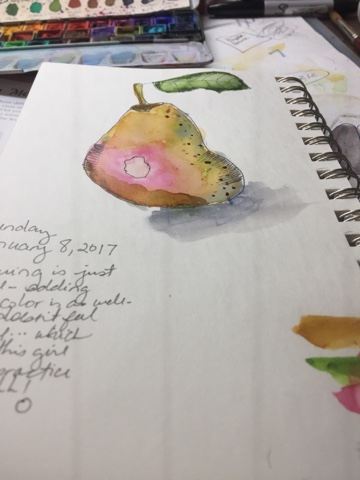 unday
nuary 8, 2017
wing is just
- adding
color is as well-
doesn't feel
... which
this girl
practice